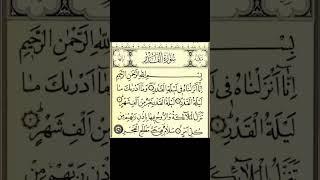 سُوْرَةُ الْقَدْرِ
بِسْمِ اللّٰهِ الرَّحْمٰنِ الرَّحِيْمِ
اِنَّاۤ اَنْزَلْنٰهُ فِيْ لَيْلَةِ الْقَدْرِ وَمَاۤ اَدْرٰىكَ مَا
لَيْلَةُ الْقَدْرِ لَيْلَةُ الْقَدْرِ خَيْرٌ مِّنْ اَلْفِ شَهْرٍ
تَنَزَّلُ الْمَلٰٓئِكَةُ وَالرُّوْحُ فِيْهَا بِاِذْنِ رَبِّهِمْ مِّنْ
كُلِّ اَمْرٍ سَلٰمٌ هِيَ حَتّٰى مَطْلَعِ الْفَجْرِ